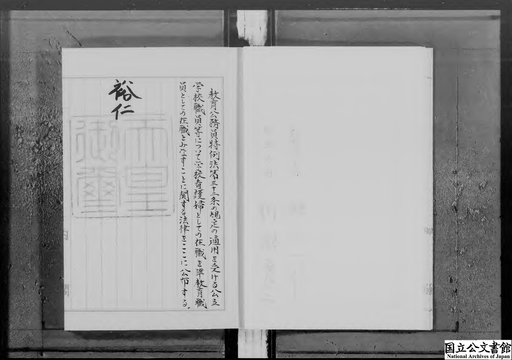 教育公務員特例法第三十三条の規定の適用を受ける公立
学校職員等について学校看護婦としての在職を準教育職
員としての在職とみなすことに関する法律をここに公布する。
裕仁
天皇
御璽
国立公文書館
National Archives of Japan